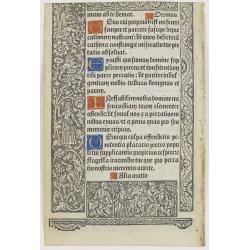 Oremus
Eus cui propriũ est misereri
semper et parcere suscipe depre
cationem nostram: et quos delictorũ
cathena constringit miseratio tue pie
tatis absoluat.
Exaudi quesumus domine sup
plicum preces et confitentium
tibi parce peccatis: ut pariter indul
gentiam nobis tribuas benignus et
pacem.
Ineffabilem nobis domine mi
sericordiam tuam clementer
ostende: ut simul nos et a peccatis om
nibus exuas et a penis quas pro his
meremur eripias.
Deus qui culpa offenderis pe
nitentia placaris preces popu
li tui supplicantis propicius respice
flagella iracundie tue que pro pecca
tis nostris meremur auerte.
Alia oratio